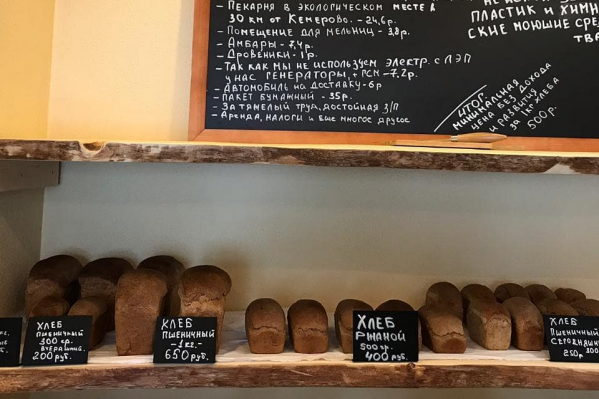 - Пекарня в экологическом месте в
30 км от Кемерово. - 24,6р.
- Помещение для мельниц - 3,8р.
- Амбары - 7,4р.
- Дровеники - 1р
- Так как мы не используем электр. с ЛЭП
у нас генераторы, + ГСМ - 7,2р.
- Автомобиль на доставку - 6р
- Пакет бумажный - 35р.
- За тяжелый труд, достойная З/П
- Аренда, налоги и еще многое другое
пластик и хими
ские моющие сре
тва
Итог:
минимальная
цена без дохода
и развития
за 1кг хлеба
500р.
Хлеб
пшеничный
300 гр.
вчерашний
200 руб.
Хлеб
пшеничный
- 1кг. -
650 руб.
Хлеб
Ржаной
500гр.
400 руб.
Хлеб
пшеничный
сегодняшн
250р